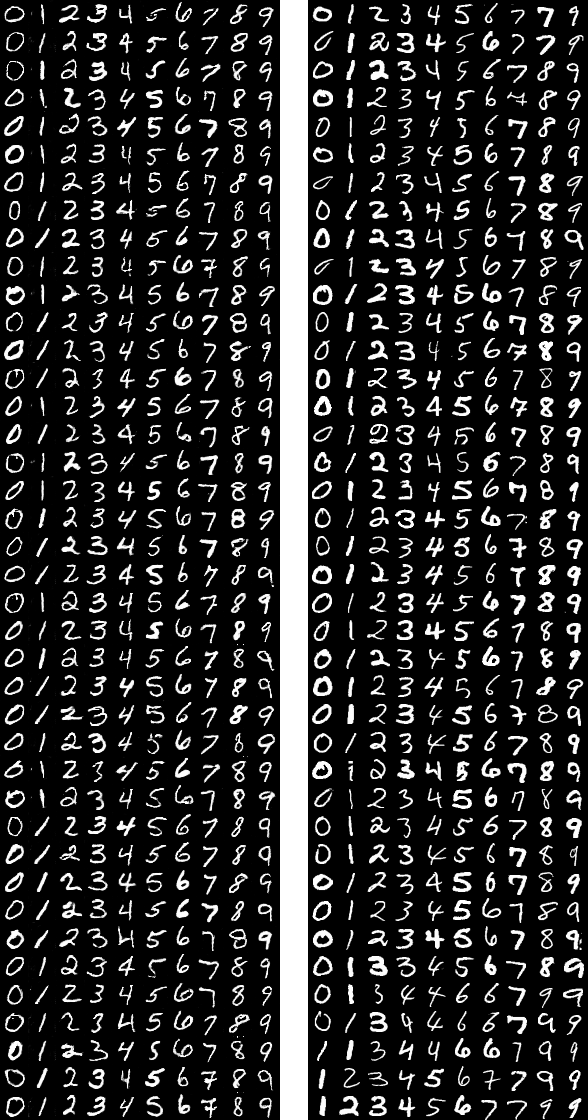 0 1 2 3 4 5 6 7 8 9
0 1 2 3 4 5 6 7 8 9
0 1 2 3 4 5 6 7 8 9
0 1 2 3 4 5 6 7 8 9
0 1 2 3 4 5 6 7 8 9
0 1 2 3 4 5 6 7 8 9
0 1 2 3 4 5 6 7 8 9
0 1 2 3 4 5 6 7 8 9
0 1 2 3 4 5 6 7 8 9
0 1 2 3 4 5 6 7 8 9
0 1 2 3 4 5 6 7 8 9
0 1 2 3 4 5 6 7 8 9
0 1 2 3 4 5 6 7 8 9
0 1 2 3 4 5 6 7 8 9
0 1 2 3 4 5 6 7 8 9
0 1 2 3 4 5 6 7 8 9
0 1 2 3 4 5 6 7 8 9
0 1 2 3 4 5 6 7 8 9
0 1 2 3 4 5 6 7 8 9
0 1 2 3 4 5 6 7 8 9
0 1 2 3 4 5 6 7 8 9
0 1 2 3 4 5 6 7 8 9
0 1 2 3 4 5 6 7 8 9
0 1 2 3 4 5 6 7 8 9
0 1 2 3 4 5 6 7 8 9
0 1 2 3 4 5 6 7 8 9
0 1 2 3 4 5 6 7 8 9
0 1 2 3 4 5 6 7 8 9
0 1 2 3 4 5 6 7 8 9
0 1 2 3 4 5 6 7 8 9
0 1 2 3 4 5 6 7 8 9
0 1 2 3 4 5 6 7 8 9
0 1 2 3 4 5 6 7 8 9
0 1 2 3 4 5 6 7 8 9
0 1 2 3 4 5 6 7 8 9
0 1 2 3 4 5 6 7 8 9
0 1 2 3 4 5 6 7 8 9
0 1 2 3 4 5 6 7 8 9
0 1 2 3 4 5 6 7 8 9
0 1 2 3 4 5 6 7 8 9
0 1 2 3 4 5 6 7 7 9
0 1 2 3 4 5 6 7 7 9
0 1 2 3 4 5 6 7 8 9
0 1 2 3 4 5 6 7 8 9
0 1 2 3 4 5 6 7 8 9
0 1 2 3 4 5 6 7 8 9
0 1 2 3 4 5 6 7 8 9
0 1 2 3 4 5 6 7 8 9
0 1 2 3 4 5 6 7 8 9
0 1 2 3 4 5 6 7 8 9
0 1 2 3 4 5 6 7 8 9
0 1 2 3 4 5 6 7 8 9
0 1 2 3 4 5 6 7 8 9
0 1 2 3 4 5 6 7 8 9
0 1 2 3 4 5 6 7 8 9
0 1 2 3 4 5 6 7 8 9
0 1 2 3 4 5 6 7 8 9
0 1 2 3 4 5 6 7 8 9
0 1 2 3 4 5 6 7 8 9
0 1 2 3 4 5 6 7 8 9
0 1 2 3 4 5 6 7 8 9
0 1 2 3 4 5 6 7 8 9
0 1 2 3 4 5 6 7 8 9
0 1 2 3 4 5 6 7 8 9
0 1 2 3 4 5 6 7 8 9
0 1 2 3 4 5 6 7 8 9
0 1 2 3 4 5 6 7 8 9
0 1 2 3 4 5 6 7 8 9
0 1 2 3 4 5 6 7 8 9
0 1 2 3 4 5 6 7 8 9
0 1 2 3 4 5 6 7 8 9
0 1 2 3 4 5 6 7 8 9
0 1 2 3 4 5 6 7 8 9
0 1 2 3 4 5 6 7 8 9
0 1 3 3 4 5 6 7 8 9
0 1 3 4 4 6 6 7 9 9
0 1 3 9 4 6 6 7 9 9
1 1 3 4 4 6 6 7 9 9
1 2 3 4 5 6 7 7 9 9
1 2 3 4 5 6 7 7 9 9